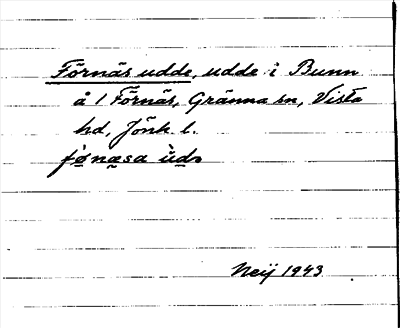 Förnäs udde, udde i Bunn
å 1 Förnäs, Gränna sn, Vista
hd, Jönk. l.
Neij 1943